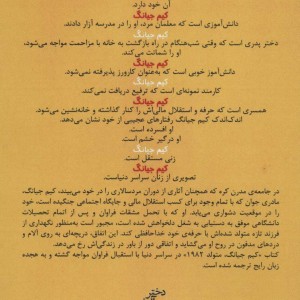 آن خود دارد.
کیم جیانگ
دانش‌آموزی است که معلمان مرد، او را در مدرسه آزار دادند.
کیم جیانگ
دختر پدری است که وقتی شب‌هنگام در راه بازگشت به خانه با مزاحمت مواجه می‌شود،
او را شماتت می‌کند.
کیم جیانگ
دانش‌آموز خوبی است که به‌عنوان کارورز پذیرفته نمی‌شود.
کیم جیانگ
کارمند نمونه‌ای است که ترفیع دریافت نمی‌کند.
کیم جیانگ
همسری است که حرفه و استقلال مالی‌اش را کنار گذاشته و خانه‌نشین می‌شود.
اندک‌اندک کیم جیانگ رفتارهای عجیبی از خود نشان می‌دهد.
او افسرده است.
او درگیر خشم است.
کیم جیانگ
زنی مستقل است.
کیم جیانگ
تصویری از زنان سراسر دنیاست.
در جامعه‌ی مدرن کره که همچنان آثاری از دوران مردسالاری را در خود می‌بیند، کیم جیانگ،
مادری جوان که با تمام وجود برای کسب استقلال مالی و جایگاه اجتماعی جنگیده است، خود
را در موقعیت دشواری می‌یابد. او که با تحمل مشقات فراوان و پس از اتمام تحصیلات
دانشگاهی موفق به دستیابی به شغل دلخواهش شده است، مجبور است به‌منظور نگهداری از
فرزند تازه متولد شده‌اش با حرفه‌ی خود خداحافظی کند. این اتفاق، دریچه‌ای به روی آلام و
دردهای مدفون در روح او می‌گشاید و اتفاقی دور از باور در زندگی‌اش رخ می‌دهد.
کتاب «کیم جیانگ، متولد ۱۹۸۲» در سراسر دنیا با استقبال فراوان مواجه گشته و به هجده
زبان رایج ترجمه شده است.